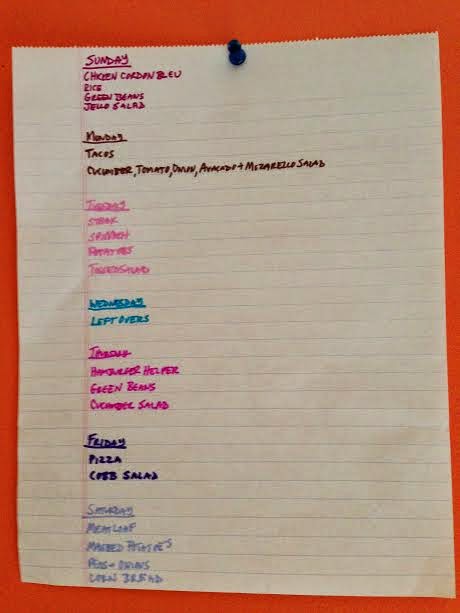 SUNDAY
CHICKEN CORDON BLEU
RICE
GREEN BEANS
JELLO SALAD
MONDAY
TACOS
CUCUMBER, TOMATO, ONION, AVACADO + MOZARELLO SALAD
TUESDAY
STEAK
SPINACH
POTATOES
TOSSED SALAD
WEDNESDAY
LEFT OVERS
THURSDAY
HAMBURGER HELPER
GREEN BEANS
CUCUMBER SALAD
FRIDAY
PIZZA
COBB SALAD
SATURDAY
MEATLOAF
MASHED POTATOES
PEAS + ONIONS
CORN BREAD